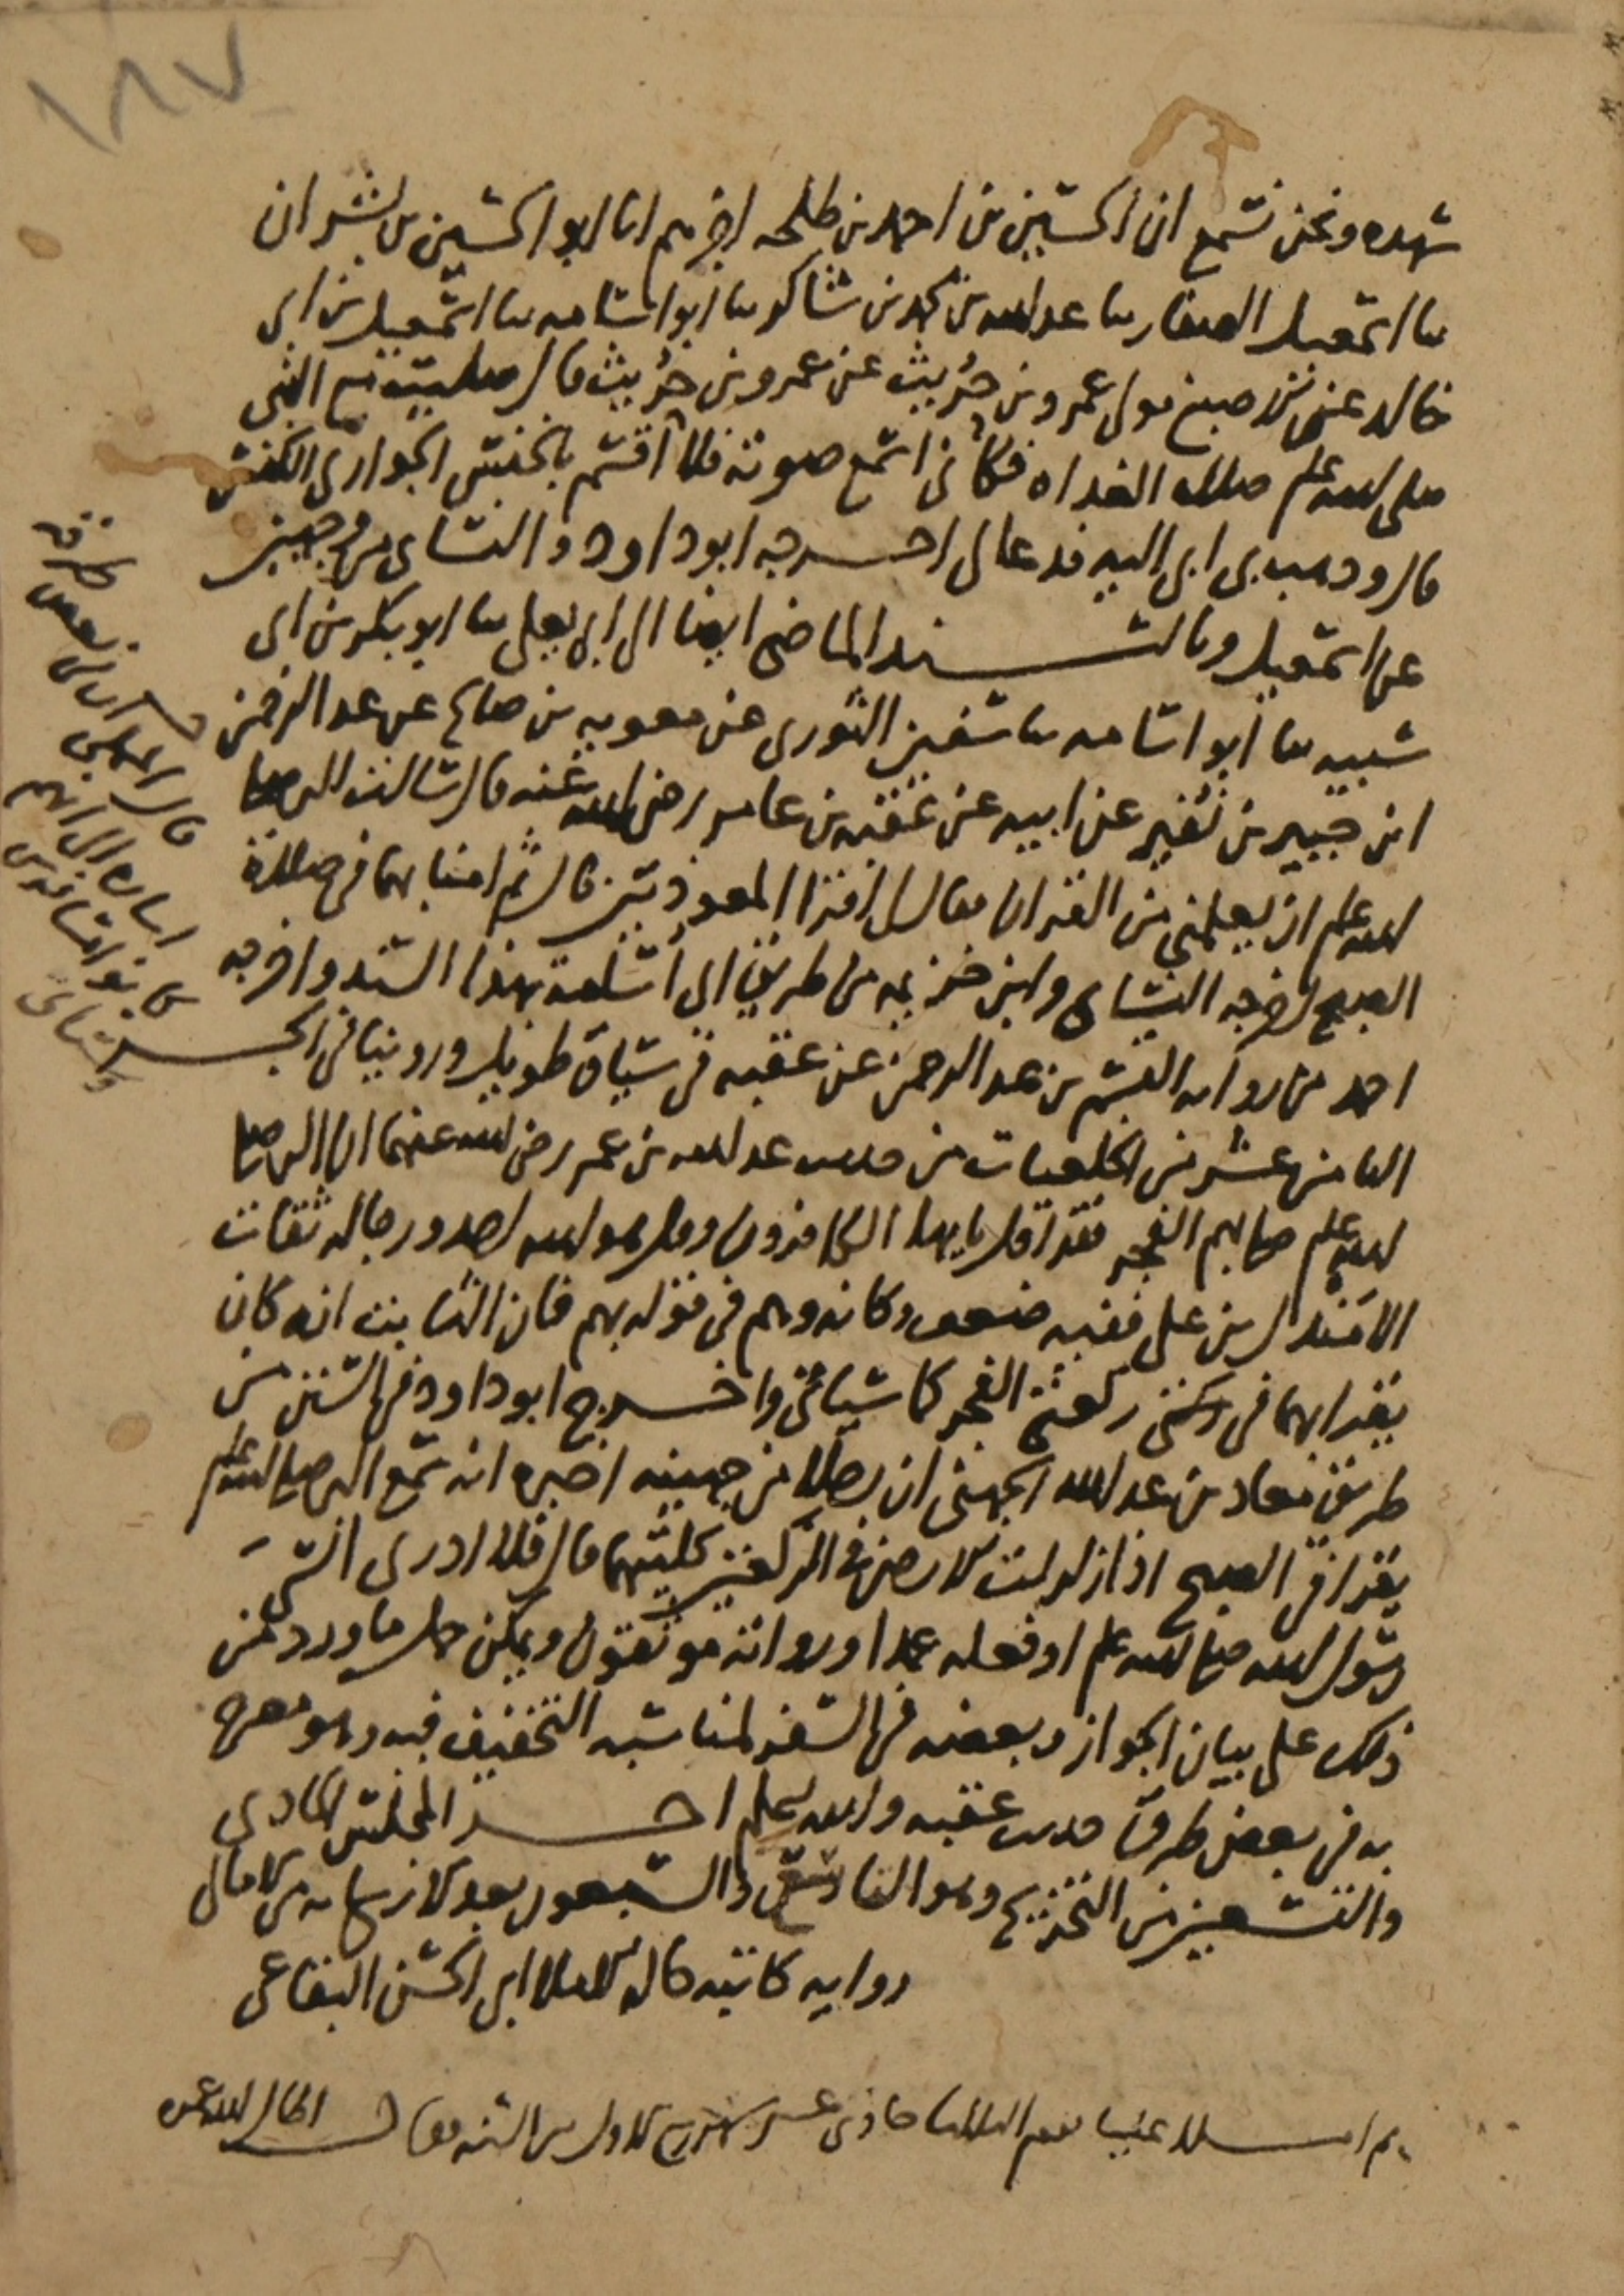 ١٨٧
شهده ونحن نسمع ان الحسين بن احمد بن طلحه اخبرهم انا ابو الحسين بن بشران
ثنا اسمعيل الصفار ثنا عبد الله بن محمد بن شاكر ثنا ابو اسامه ثنا اسمعيل بن ابي
خالد عن اصبغ مولى عمرو بن حريث عن عمرو بن حريث قال صليت مع النبي
صلى الله عليه وسلم صلاة الغداه فكأني اسمع صوته فلا أقسم بالخنس الجواري الكنس
قال وذهب بي ابي اليه فدعا لي اخرجه ابو داود والنسائي من وجهين
عن اسمعيل وبالسند الماضي ايضا الى ابي يعلى ثنا ابو بكر بن ابي
شيبه ثنا ابو اسامه ثنا سفين الثوري عن معويه بن صالح عن عبد الرحمن
ابن جبير بن نفير عن ابيه عن عقبه بن عامر رضي الله عنه قال سالت النبي صلى
الله عليه وسلم ان يعلمني من القران فقال اقرا المعوذتين قال ثم امنا بهما في صلاة
الصبح اخرجه النسائي وابن خزيمه من طريق ابي اسامة بهذا السند واخرجه
احمد من روايه القسم بن عبد الرحمن عن عقبه في سياق طويل وروينا في الجزء
الثامن عشر من الخلعيات من حديث عبد الله بن عمر رضي الله عنهما ان النبي صلى
الله عليه وسلم صلى بهم الفجر فقرا قل يايها الكافرون وقل هو الله احد ورجاله ثقات
الا مندل بن علي ففيه ضعف وكانه وهم في قوله بهم فان الثابت انه كان
يقرا بهما في ركعتي الفجر كما سياتي واخرج ابو داود في السنن من
طريق معاذ بن عبد الله الجهني ان رجلا من جهينه اخبره انه سمع النبي صلى الله عليه وسلم
يقرا في الصبح اذا زلزلت الارض في الركعتين كلتيهما قال فلا ادري انسي
رسول الله صلى الله عليه وسلم او فعله عمدا ورواته موثقون ويمكن حمل ما ورد من
ذلك على بيان الجواز وبعضه في السفر لمناسبه التخفيف فيه وهو مصرح
به في بعض طرق حديث عقبه والله اعلم اخر المجلس الحادي
والتسعين من التخريج وهو السبعون بعد الاربعمايه من الامالي
روايه كاتبه كاله الاملا ابي الحسن البقاعي
ثم املا علينا يوم الثلاثا حادي عشر شهر ربيع الاول من السنه فقال